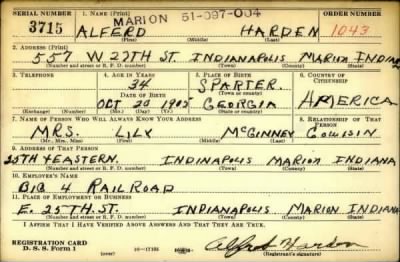 SERIAL NUMBER 1. NAME (Print) ORDER NUMBER
MARION 51-097-004
3715 ALFERD HARDEN 1043
(First) (Middle) (Last)
2. ADDRESS (Print)
557 W 27TH ST. INDIANAPOLIS MARION INDIANA
(Number and street or R. F. D. number) (Town) (County) (State)
3. TELEPHONE 4. AGE IN YEARS 5. PLACE OF BIRTH 6. COUNTRY OF CITIZENSHIP
34 SPARTER.
DATE OF BIRTH (Town or county)
OCT 20 1905 GEORGIA AMERICA
(Exchange) (Number) (Mo.) (Day) (Yr.) (State or country)
7. NAME OF PERSON WHO WILL ALWAYS KNOW YOUR ADDRESS 8. RELATIONSHIP OF THAT PERSON
MRS. LILY MCGINNEY COUISIN
(Mr., Mrs., Miss) (First) (Middle) (Last)
9. ADDRESS OF THAT PERSON
25TH & EASTERN. INDINAPOLIS MARION INDIANA
(Number and street or R. F. D. number) (Town) (County) (State)
10. EMPLOYER'S NAME
BIG 4 RAILROAD
11. PLACE OF EMPLOYMENT OR BUSINESS
E. 25TH. ST. INDIANAPOLIS MARION INDIANA
(Number and street or R. F. D. number) (Town) (County) (State)
I AFFIRM THAT I HAVE VERIFIED ABOVE ANSWERS AND THAT THEY ARE TRUE.
REGISTRATION CARD
D. S. S. Form 1 Alfred Harden
(Registrant's signature)